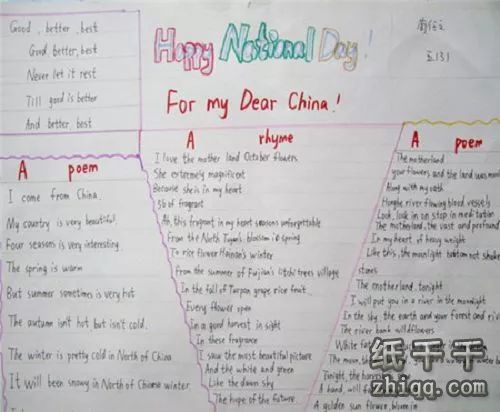 Good, better, best
Good, better, best
Never let it rest
Till good is better
And better, best
Happy National Day!
For my Dear China!
五131
A poem
I come from China.
My country is very beautiful.
Four seasons is very interesting.
The spring is warm
But summer sometimes is very hot
The autumn isn't hot but isn't cold.
The winter is pretty cold in North of China
It will been snowy in North of Chinese winter.
A rhyme
I love the mother land October flowers
She extremely magnificent
Because she is in my heart
So of fragrant
Ah, this fragrant in my heart seasons unforgettable
From the North Tugan's blossom in spring
To rise flower Hainan's winter
From the summer of Fujian's litchi trees village
In the fall of Turpan grape rice fruit
Every flower open
In a good harvest in sight
In these fragrance
I saw the most beautiful picture
And the white and green
Like the dawn sky
The hope of the future.
A poem
The motherland
your flowers and the land was
Along with my oath
Honghe river flowing blood vessels
Look, look in on step in meditation
The motherland, the vast and profound
In my heart of heavy weight
Like this, the moonlight bottom not shake
stones
The motherland, tonight
I will put you in a river in the moonlight
In the sky, the earth and your forest and
The river bank wildflowers
White
The moon, the
Tonight, the
A hand, will
A golden sun flower, bloom in
纸千千
zhiqq.com